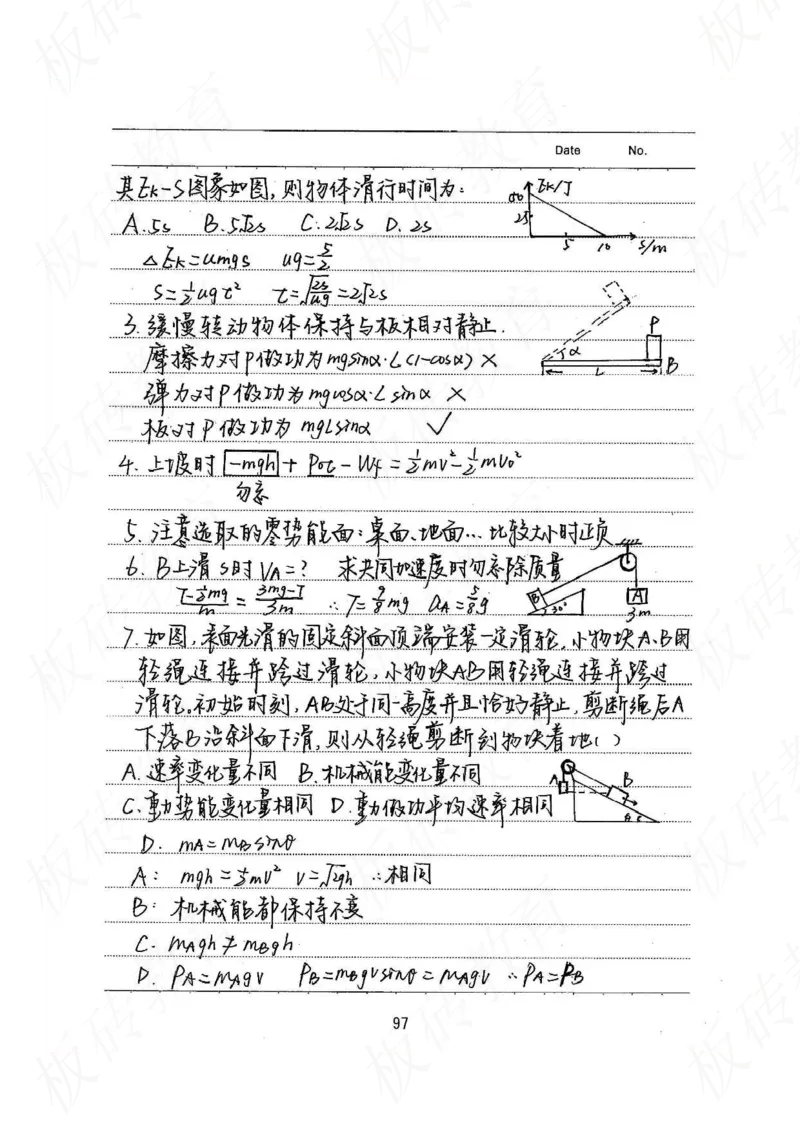 Date No.
其Ek-S图象如图,则物体滑行时间为:
A.5s B.5√2s C.2√2s D.2s
Ek/J
50
25
5 10 s/m
△Ek=umgs ug=5/2
S=½ugt² t=√(2s/ug)=2√2s
3.缓慢转动物体保持与板相对静止.
摩擦力对P做功为mgsinα·L(1-cosα) ×
弹力对P做功为mgcosα·Lsinα ×
板对P做功为mgLsinα √
P
α
L B
4.上坡时 -mgh + Pot - Wf = ½mv²-½mv₀²
勿忘
5.注意选取的零势能面:桌面、地面…比较大小时正负
6.B上滑S时VA=? 求共同加速度时勿忘除质量
(T-½mg)/m = (3mg-T)/3m ∴T=9/8mg aA=5/8g
B 30° A
3m
7.如图,表面光滑的固定斜面顶端安装一定滑轮,小物块A、B用
轻绳连接并跨过滑轮,小物块AB用轻绳连接并跨过
滑轮。初始时刻,AB处于同一高度并且恰好静止,剪断绳后A
下落B沿斜面下滑,则从轻绳剪断到物块着地( )
A.速率变化量不同 B.机械能变化量不同
C.重力势能变化量相同 D.重力做功平均速率相同
A B
θ
D. mA=mBsinθ
A: mgh=½mv² v=√2gh ∴相同
B: 机械能都保持不变
C. mAgh≠mBgh
D. PA=mAgv PB=mBgvsinθ=mAgv ∴PA=PB
97
板砖教育